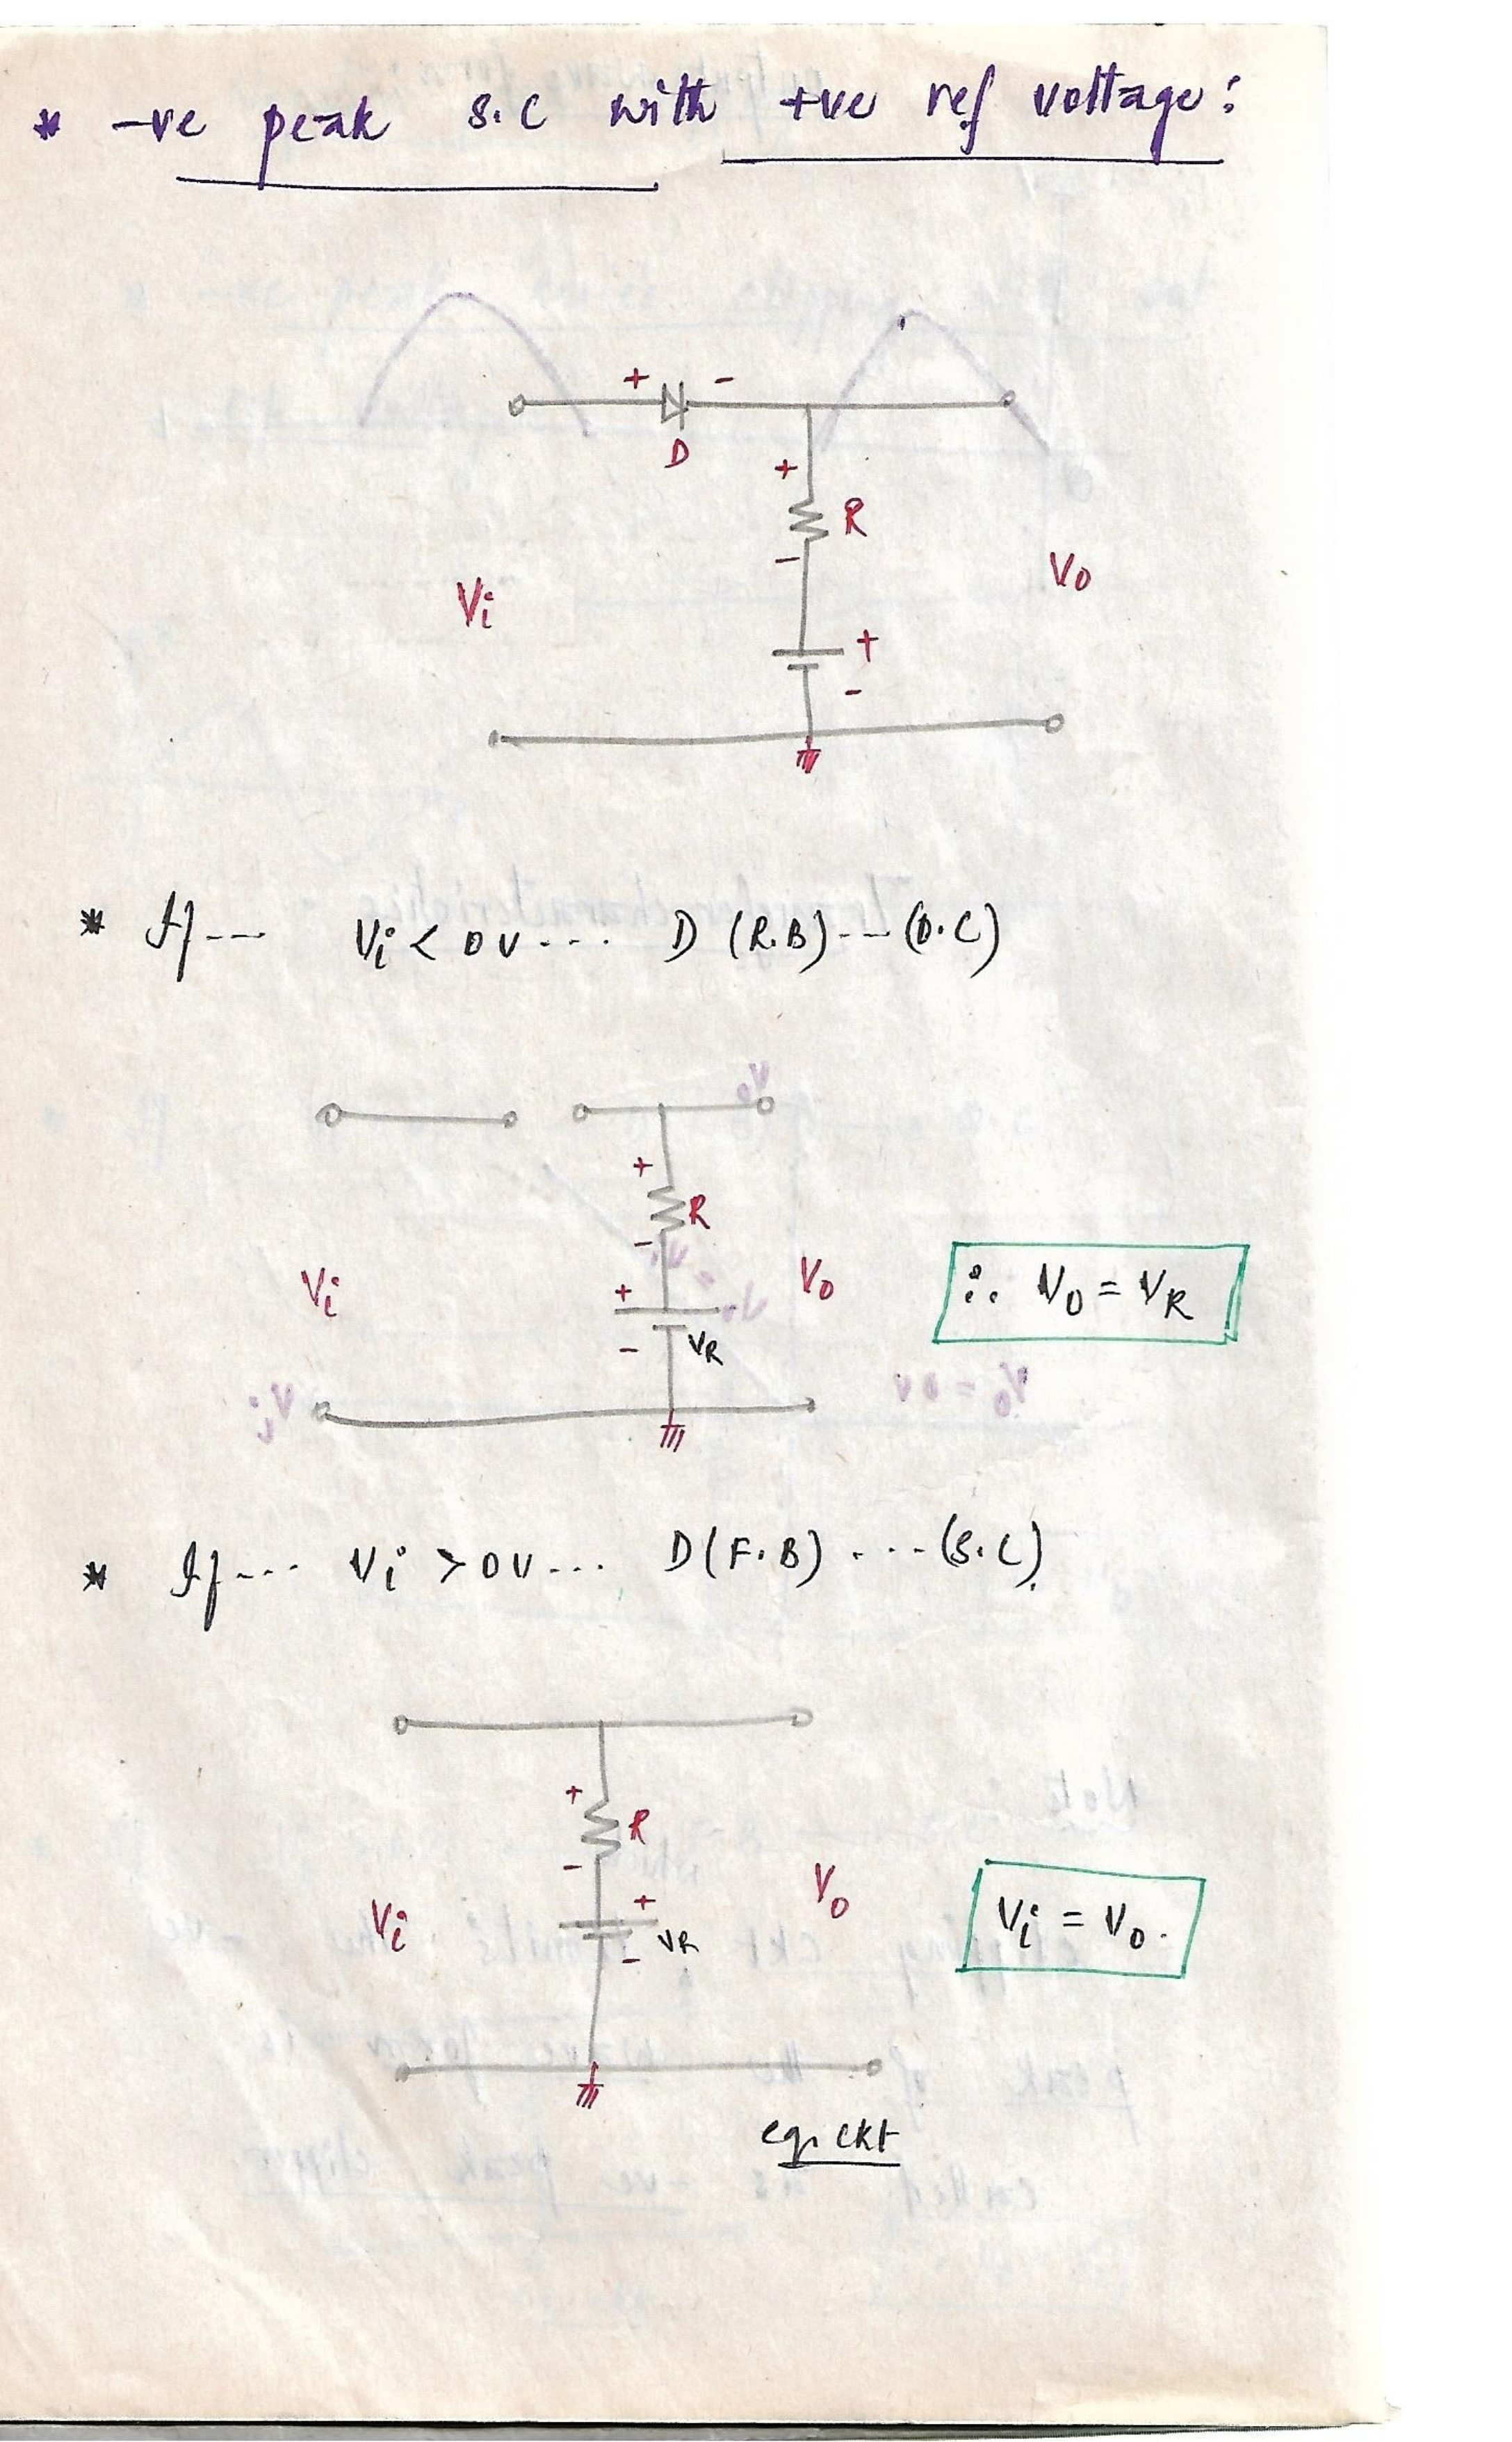 * -ve peak s.c with +ve ref voltage:
+ -
D
+
R
-
Vi
Vo
+
-
* If--- Vi < 0V--- D (R.B)--- (O.C)
+
R
-
Vi
+
Vo
∴ Vo = VR
- VR
* If--- Vi > 0V--- D(F.B) ---(S.C).
+
R
-
Vi
+
Vo
Vi = Vo.
VR
-
eq. ckt